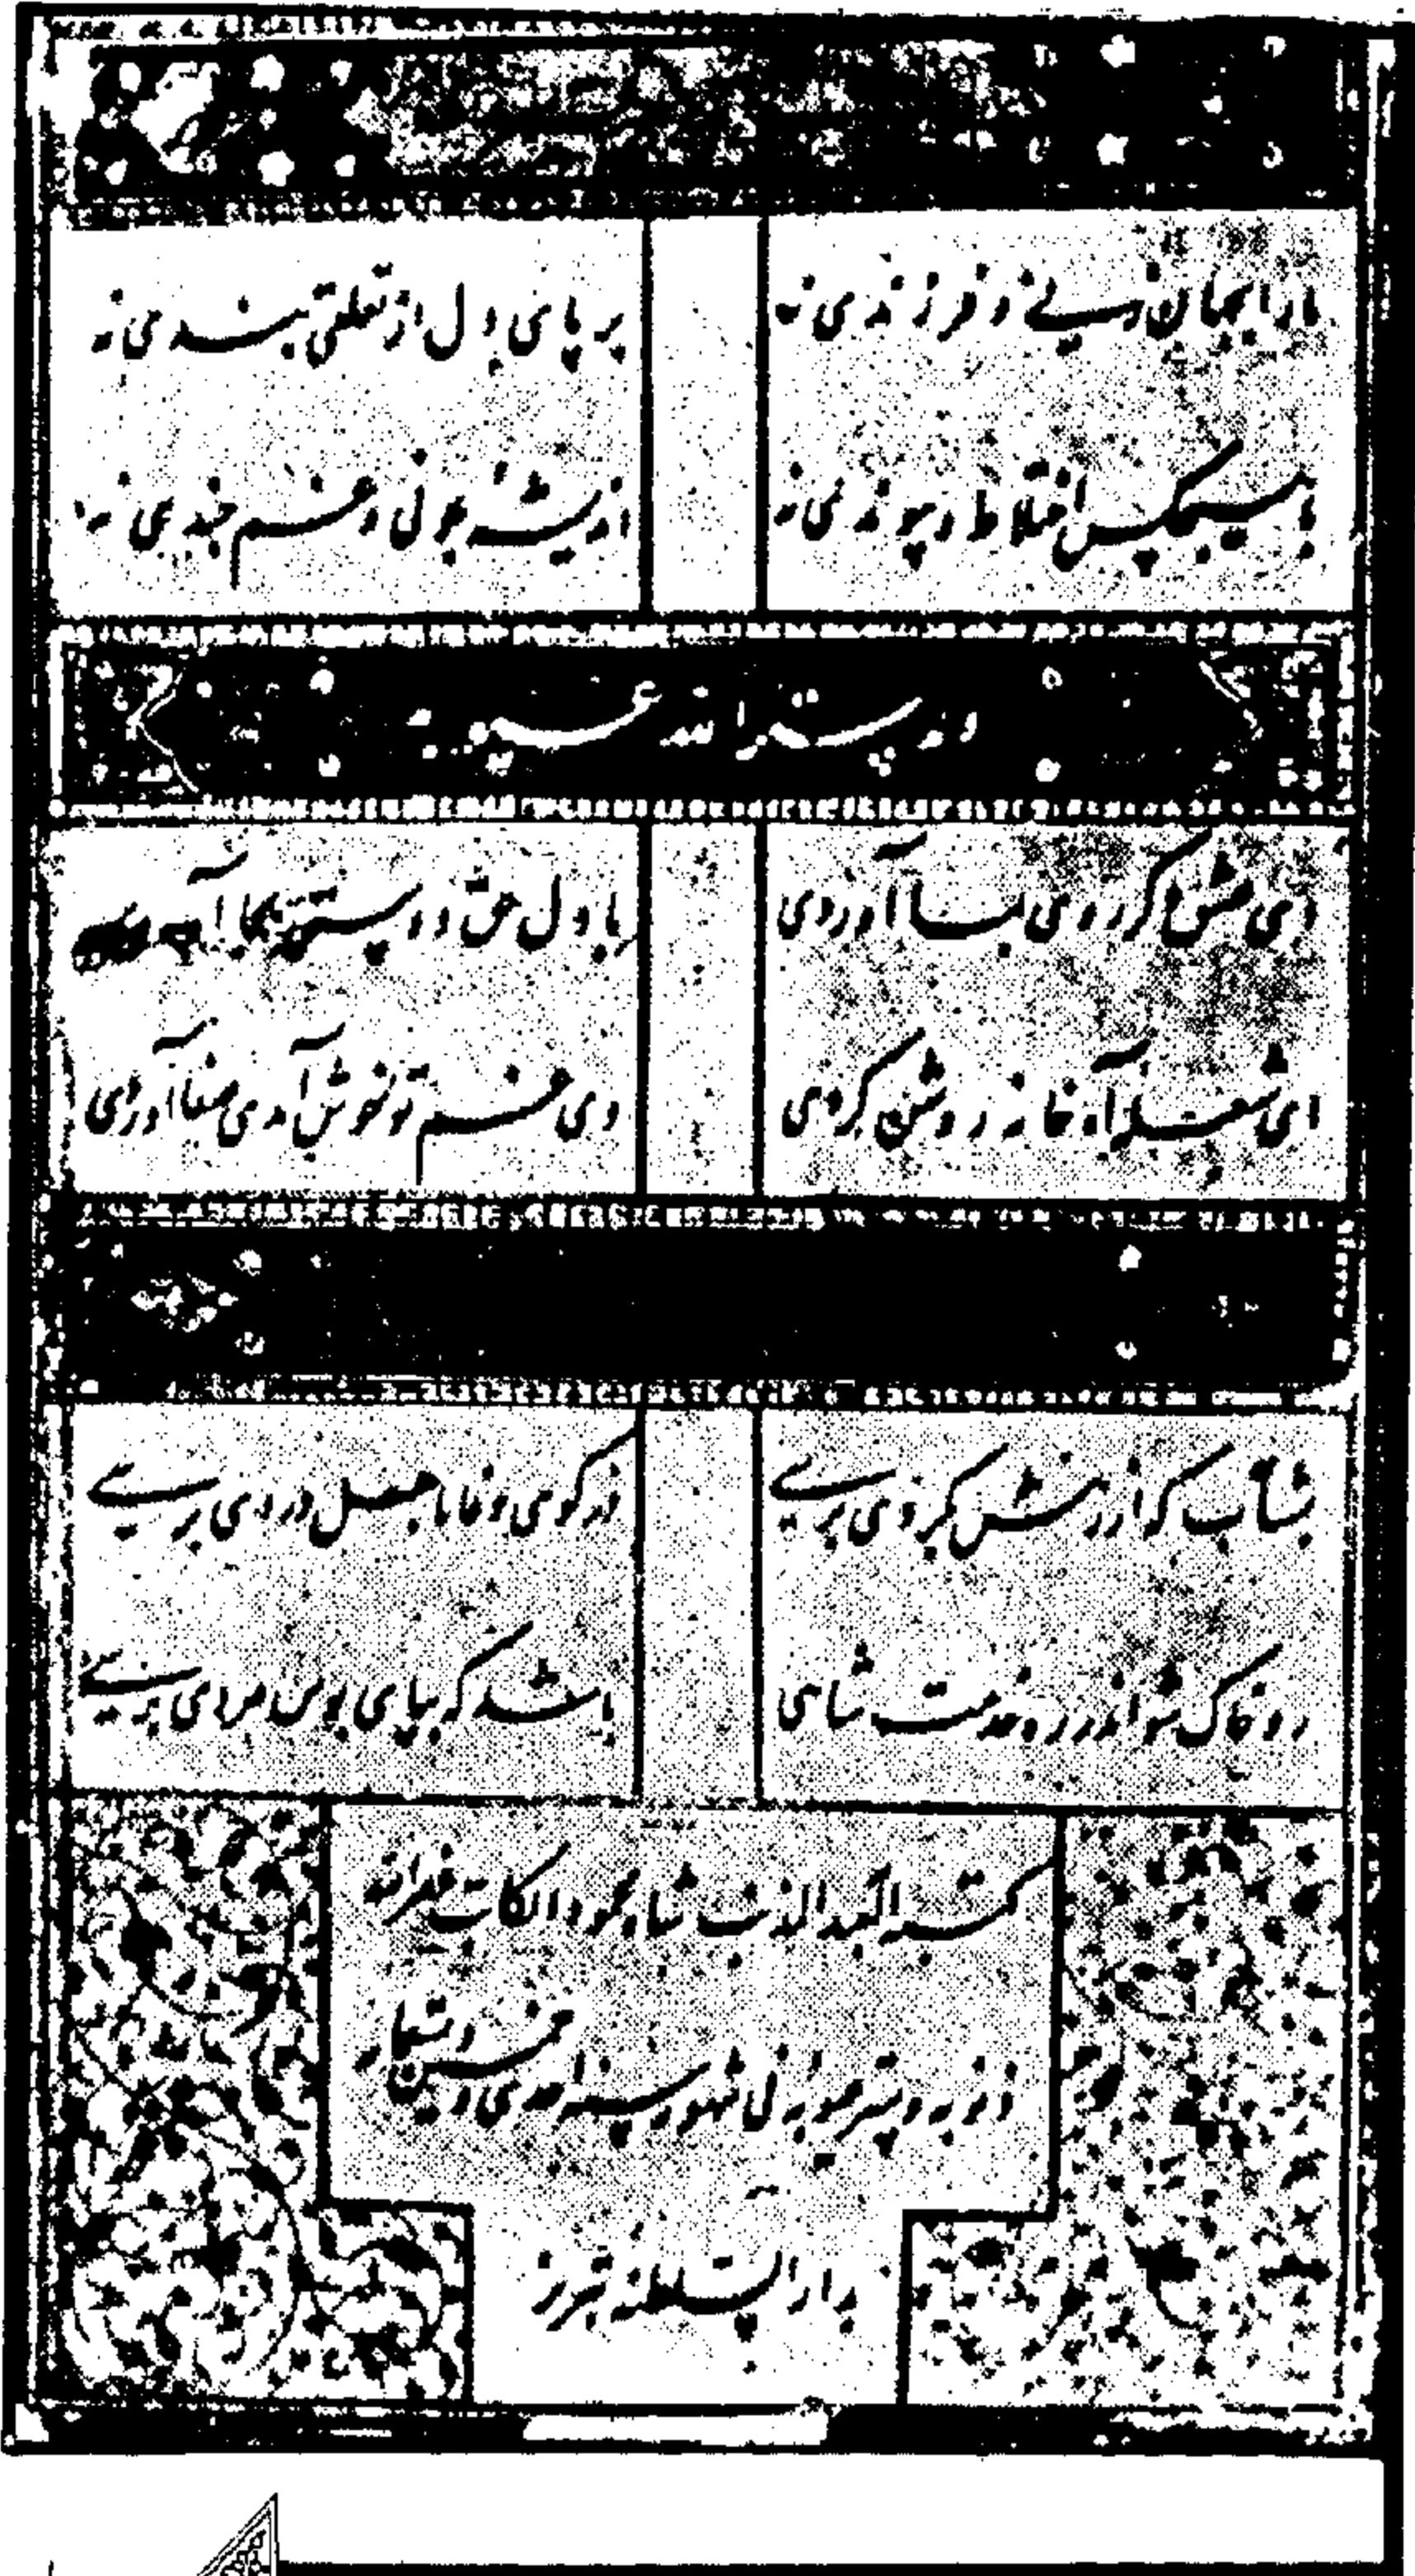 ما را بجهان زنی و فرزندی نه
بر پای دل از تعلقی بندی نه
با هیچکس اختلاط و پیوندی نه
اندیشه جوئی و غم چندی نه
ای عشق دگر روی بما آوردی
با دل حق دوستی بجا آوردی
ای شعله آه خانه روشن کردی
وی غم تو خوش آمدی صفا آوردی
بشتاب که از رهش بگردی برسی
وز کوی وفا باهل دردی برسی
رو خاک شو اندر ره خدمت شاهی
باشد که بپای بوس مردی برسی
کتبه العبد المذنب شاه محمود الکاتب غفر الله
ذنوبه و ستر عیوبه فی شهور سنه احدی و
بدار السلطنه تبریز